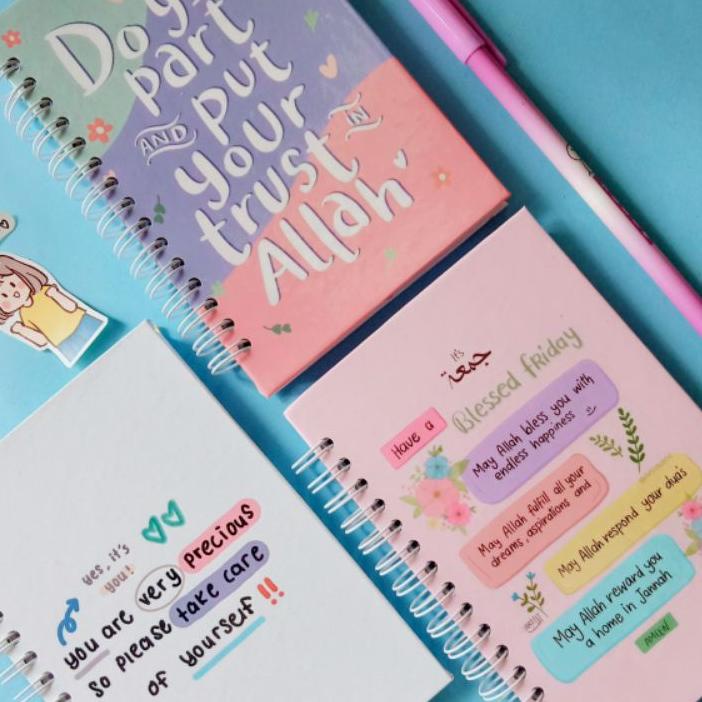 Do your
part
AND put
your
trust IN
Allah
it's
جمعة
Have a Blessed friday
May Allah bless you with
endless happiness
May Allah fulfill all your
dreams, aspirations and
May Allah respond your dua's
May Allah reward you
a home in Jannah
AMIIN
yes, it's
you!
you are very precious
so please take care
of yourself!!